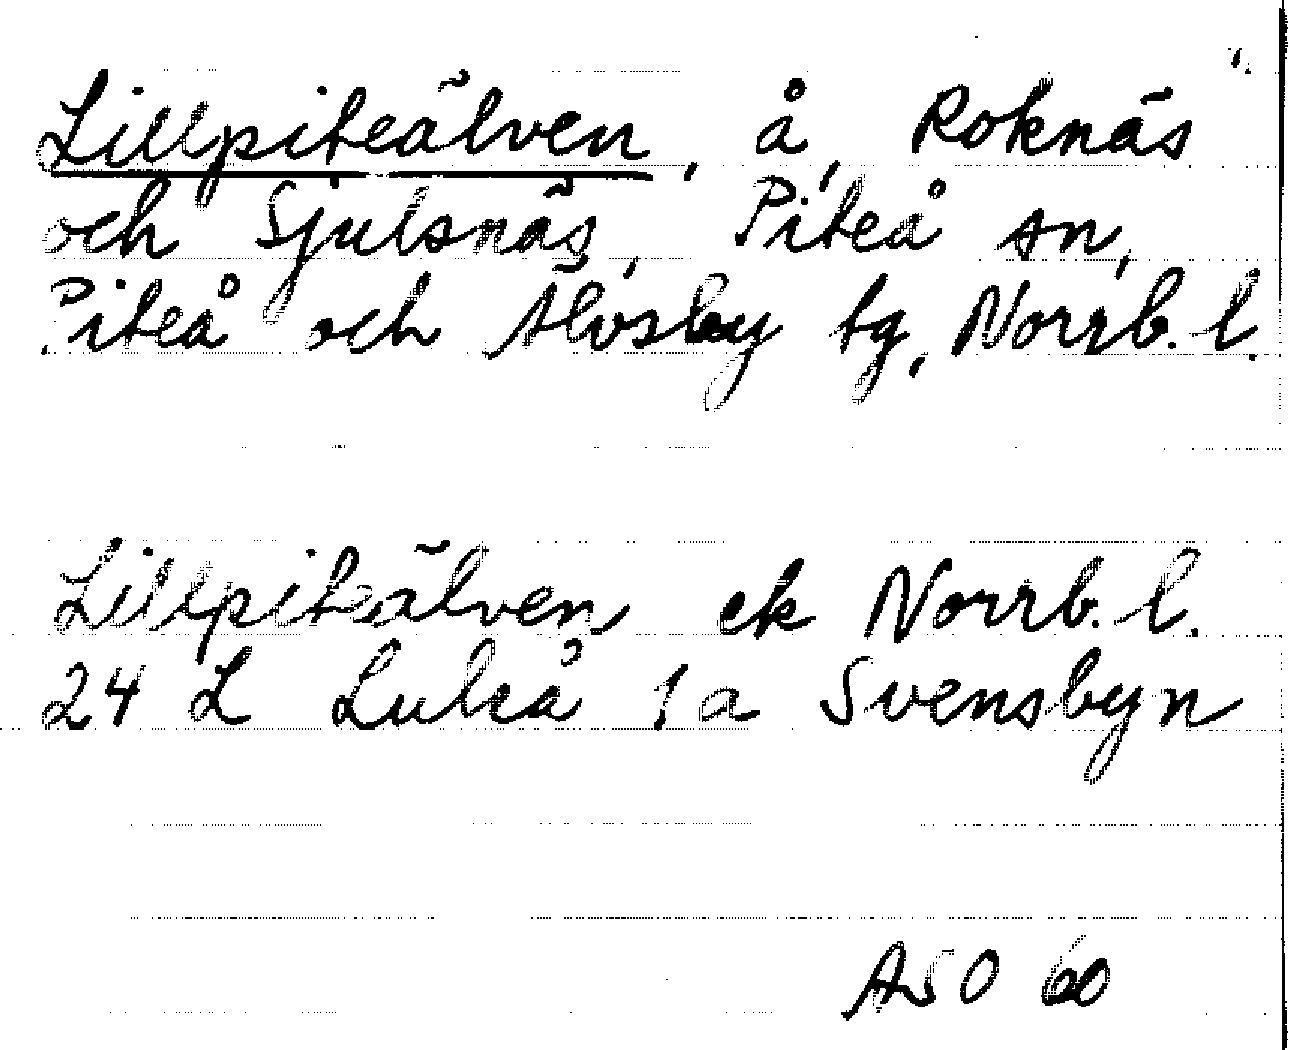 Lillpiteälven, å, Roknäs
och Sjulsnäs, Piteå sn,
Piteå och Älvsby tg, Norrb. l.
Lillpiteälven ek Norrb. l.
24 L Luleå 1 a Svensbyn
ASO 60